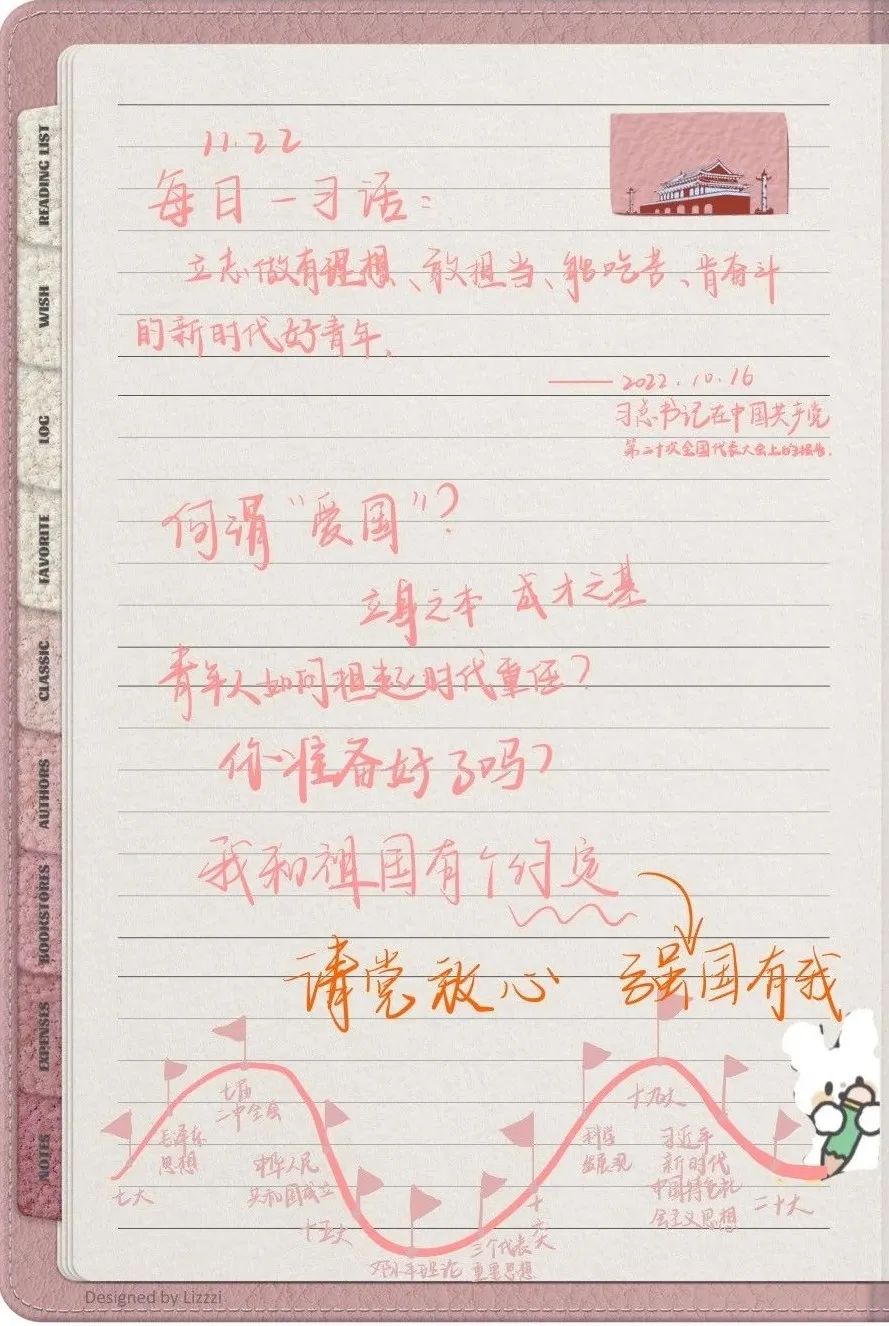 READING LIST
WISH
LOG
FAVORITE
CLASSIC
AUTHORS
BOOKSTORES
EXPENSES
NOTES
11.22
每日一习话：
立志做有理想、敢担当、能吃苦、肯奋斗
的新时代好青年.
——2022.10.16
习总书记在中国共产党
第二十次全国代表大会上的报告.
何谓“爱国”？
立身之本 成才之基
青年人如何担起时代重任？
你准备好了吗？
我和祖国有个约定
请党放心 强国有我
七大
毛泽东
思想
七届
二中全会
中华人民
共和国成立
十五大
邓小平理论
三个代表
重要思想
十六大
科学
发展观
十九大
习近平
新时代
中国特色社
会主义思想
二十大
Designed by Lizzzi